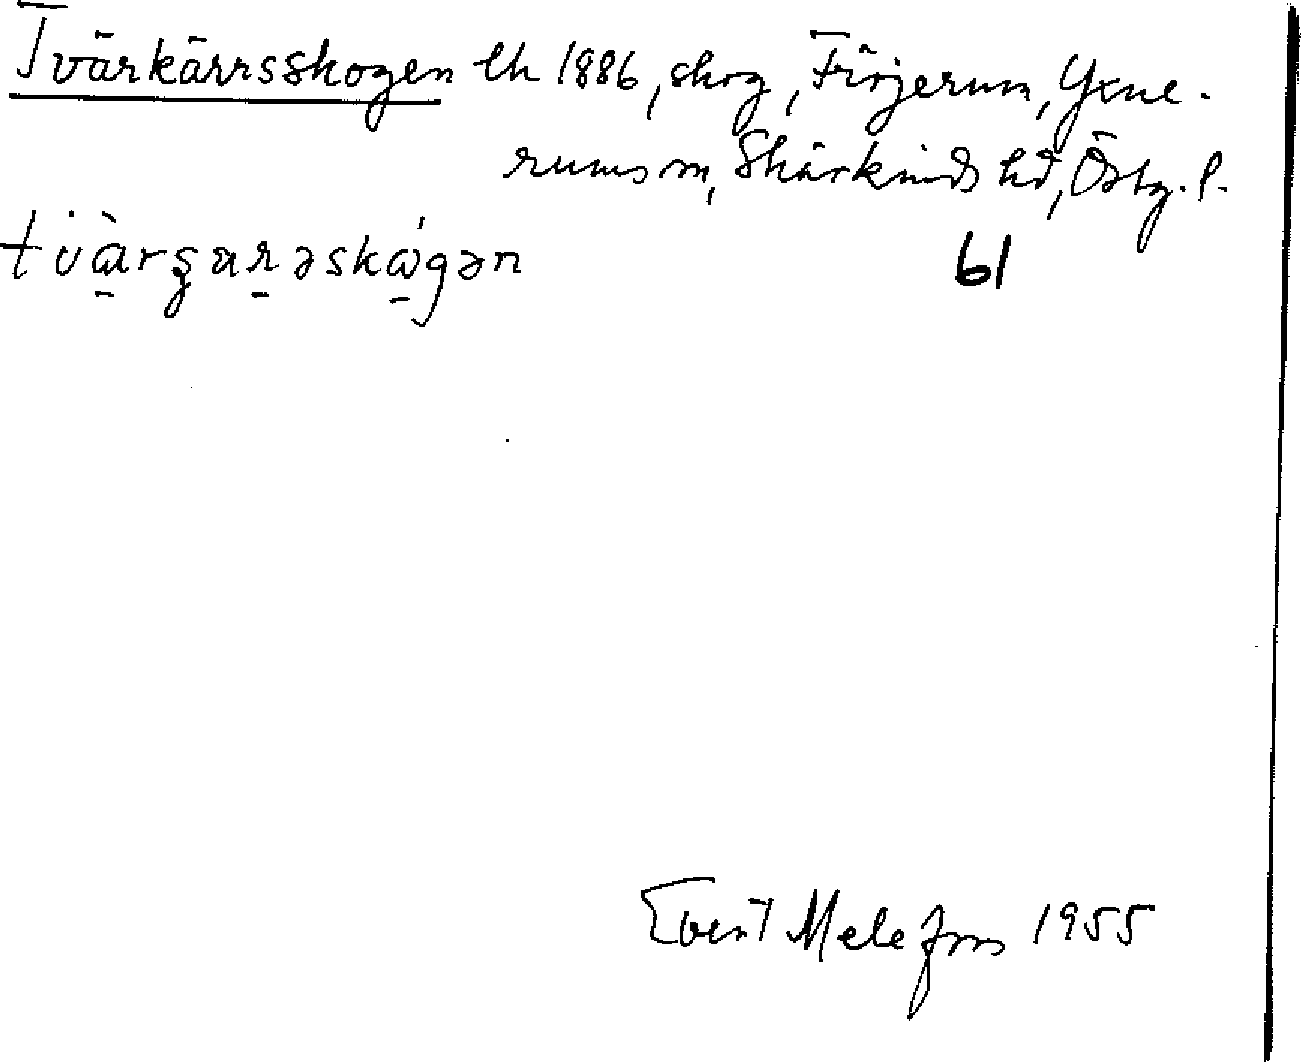 Tvärkärrsskogen lh 1886, skog, Fröjerum, Yxne-
rums sn, Skärkinds hd, Östg. l.
61
Evert Melefors 1955